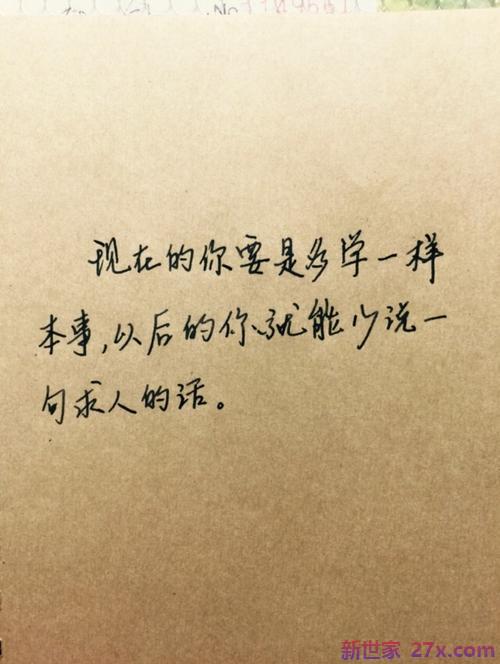 现在的你要是多学一样
本事,以后的你就能少说一
句求人的话。
新世家 27x.com